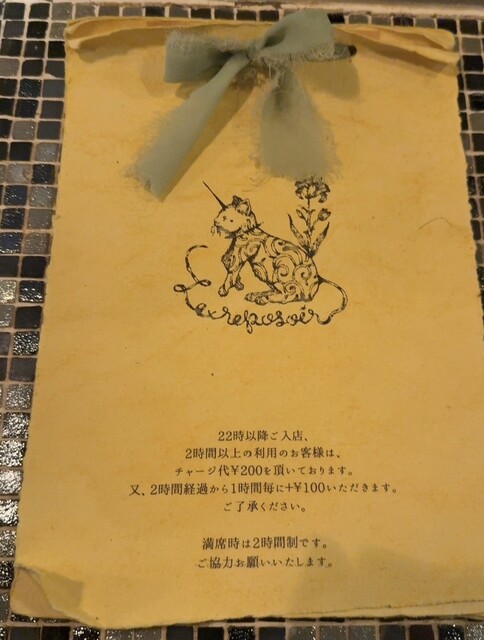 Le reposoir
22時以降ご入店、
2時間以上の利用のお客様は、
チャージ代¥200を頂いております。
又、2時間経過から1時間毎に+¥100いただきます。
ご了承ください。
満席時は2時間制です。
ご協力お願いいたします。